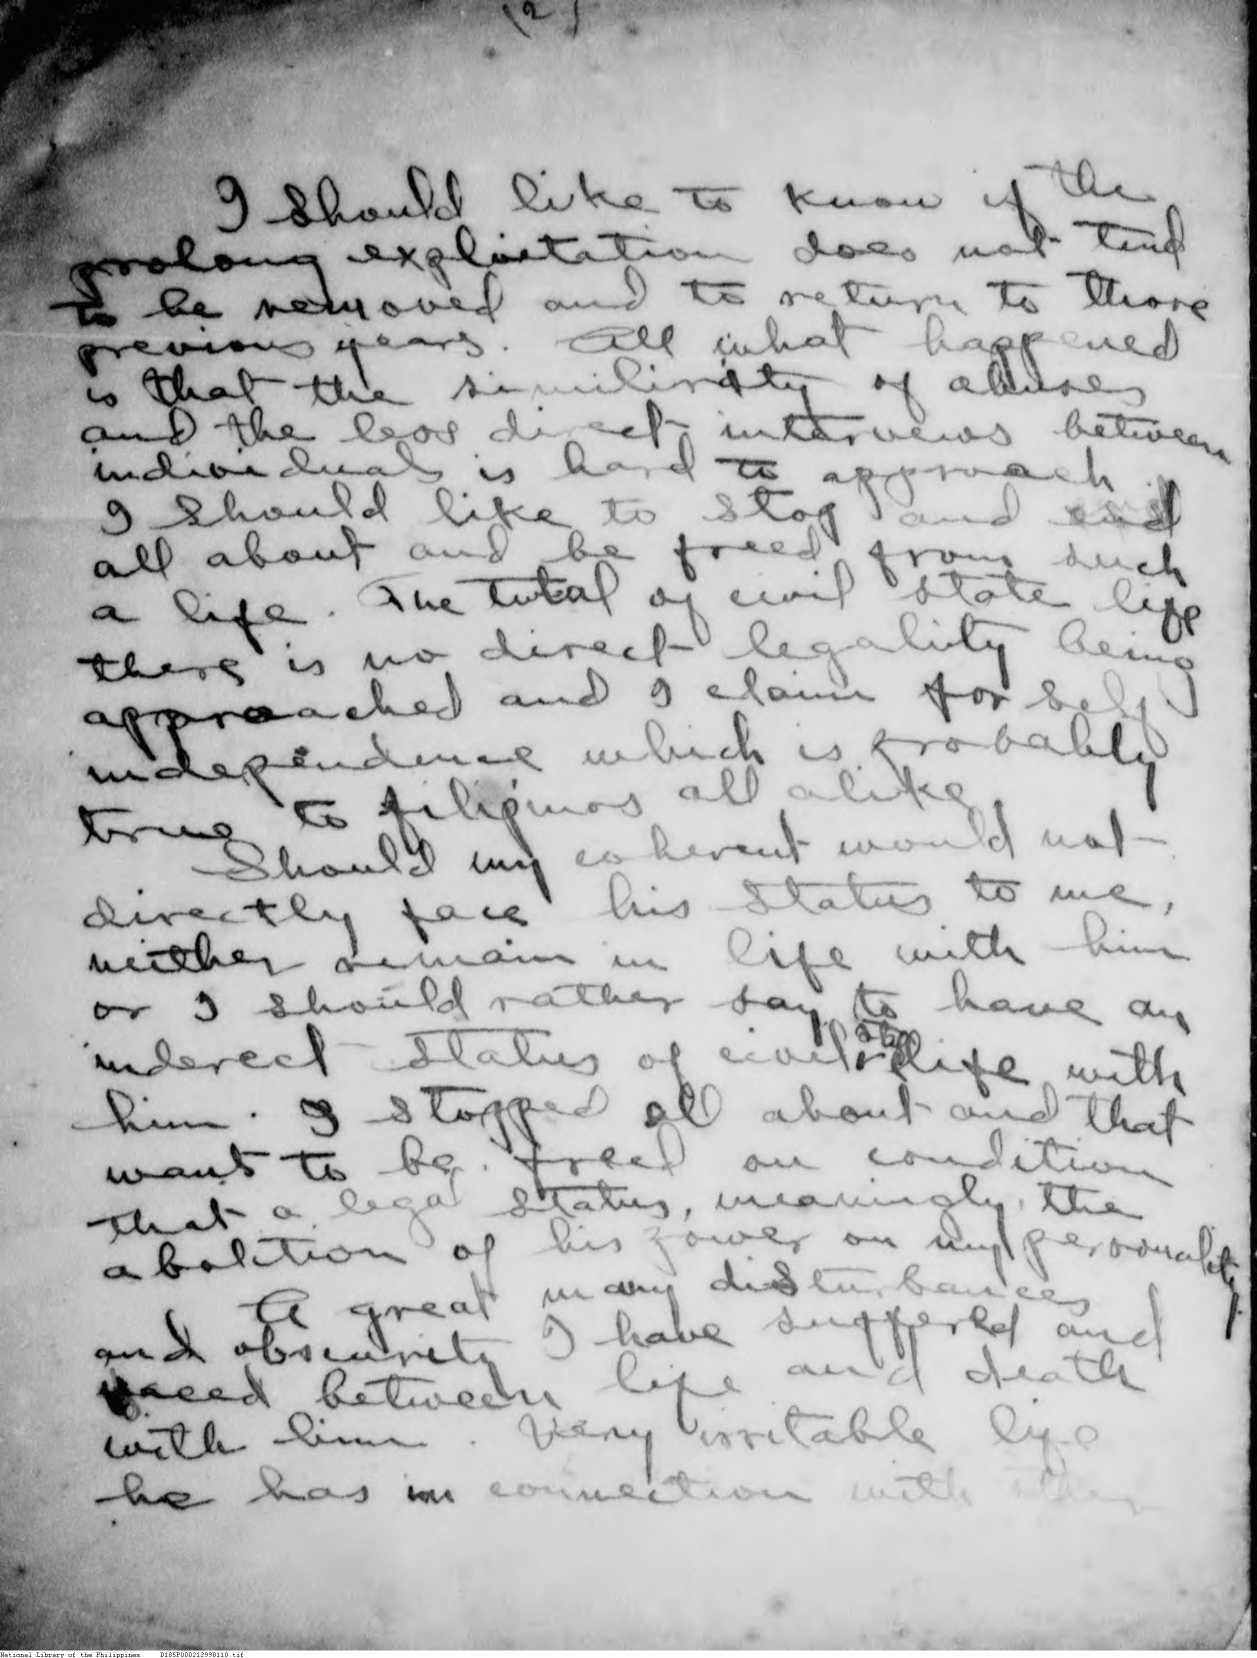 (2)
I should like to know if the
prolong exploitation does not tend
to be removed and to return to those
previous years. All what happened
is that the similirity of abuses
and the less direct interviews between
individuals is hard to approach
I should like to stop and end
all about and be freed from such
a life. The total of civil state life
there is no direct legality being
approached and I claim for self
independence which is probably
true to filipinos all alike.
Should my coherent would not
directly face his status to me,
neither remain in life with him
or I should rather say to have an
inderect status of civil life with
him. I stopped all about and that
want to be freed on condition
that a legal status, meaningly, the
abolition of his power on my personality.
A great many disturbances
and obscurity I have suffered and
faced between life and death
with him. Very irritable life
he has in connection with other
National Library of the Philippines D185P000212998110.tif